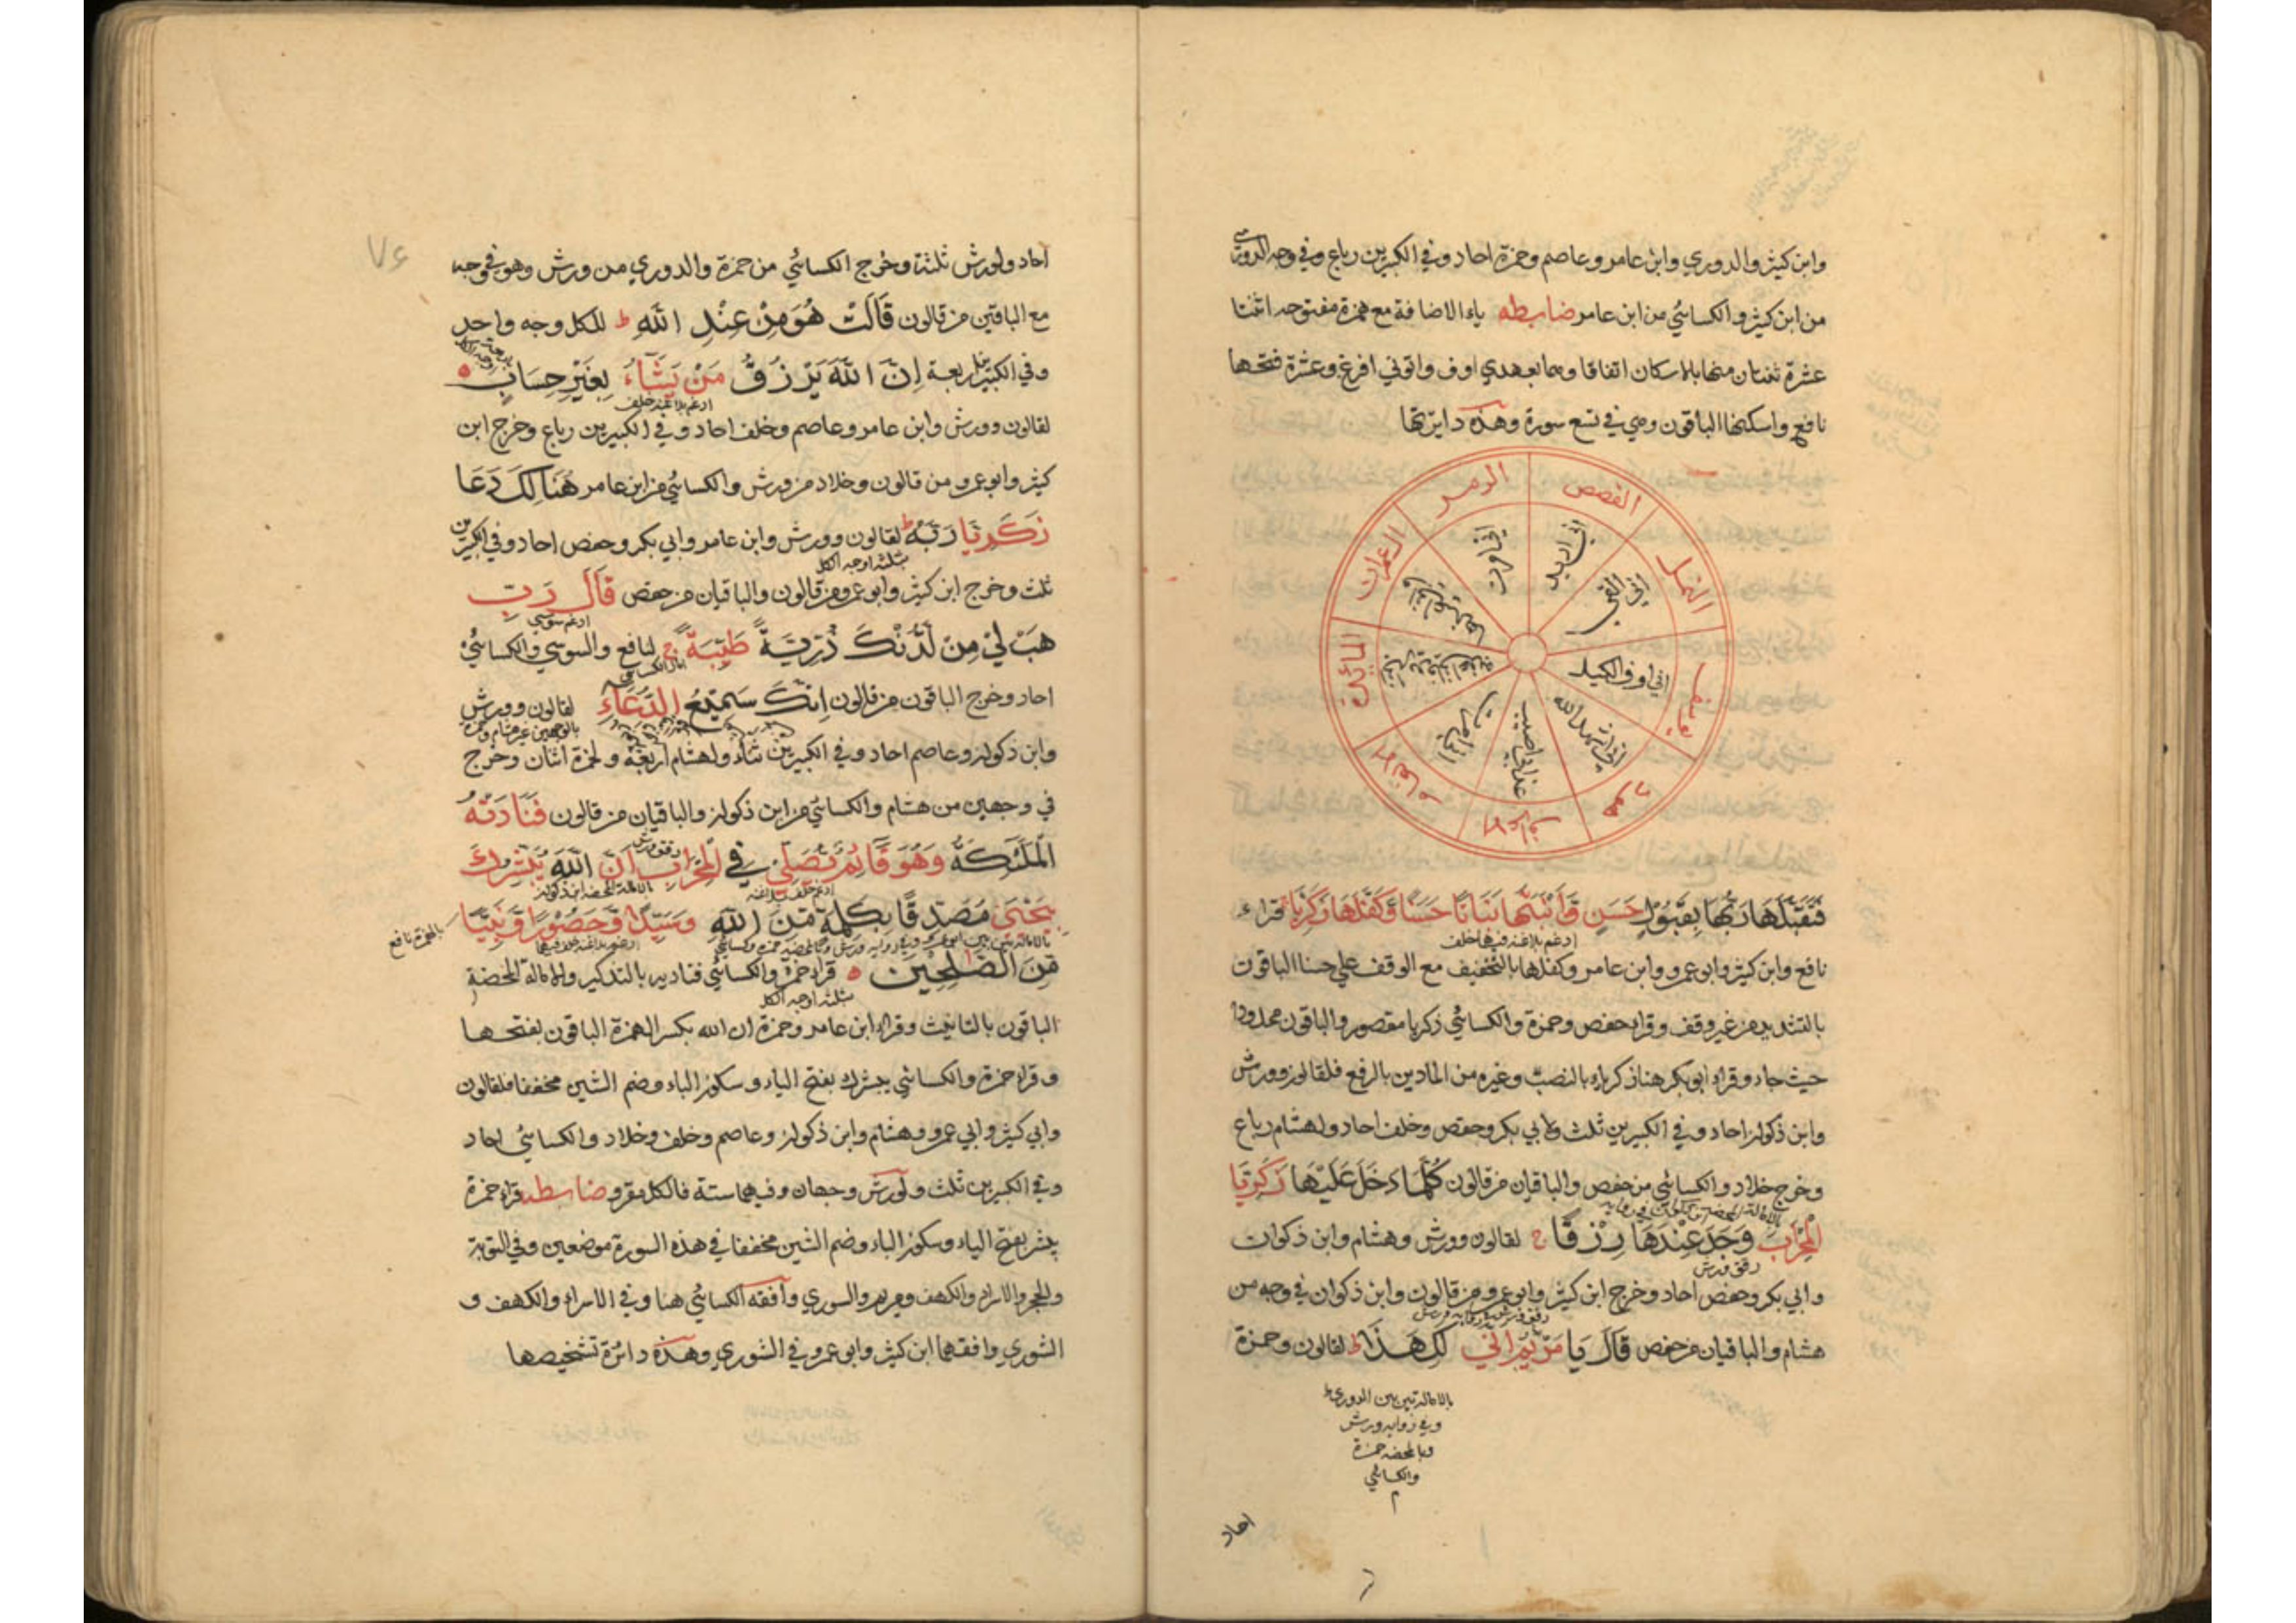 وابن كثير والدوري وابن عامر وعاصم وحمزة احاد وفي الكبيرين رباع وفي وجه الدوري
من ابن كثير والكسائي من ابن عامر ضابطه ياء الاضافة مع همزة مفتوحه اثنتا
عشرة ثنتان منها بالاسكان اتفاقا وهما بعهدي اوف واتوني افرغ وعشرة فتحها
نافع واسكنها الباقون وهي في تسع سورة وهذه دايرتها
القصص
اني اريد
النمل
اني القي
يوسف
اني اوف الكيل
هود
اني اشهد الله
الاعراف
عذابي اصيب
الانعام
اني امرت
المائدة
ال عمران
الزمر
اني امرت
فَتَقَبَّلَهَا رَبُّهَا بِقَبُوْلٍ حَسَنٍ وَّاَنْبَتَهَا نَبَاتًا حَسَنًا وَّكَفَّلَهَا زَكَرِيَّا قراء
ادغم بلا غنه فيهما خلف
نافع وابن كثير وابو عمرو وابن عامر وكفلها بالتخفيف مع الوقف علي حسنا الباقون
بالتشديد من غير وقف وقراء حفص وحمزة والكسائي زكريا مقصور والباقون ممدودا
حيث جاء وقراء ابو بكر هنا زكرياء بالنصب وغيره من المادين بالرفع فلقالون وورش
وابن ذكوان احاد وفي الكبيرين ثلث ولابي بكر وحفص وخلف احاد ولهشام رباع
وخرج خلاد والكسائي من حفص والباقيان من قالون كُلَّمَا دَخَلَ عَلَيْهَا زَكَرِيَّا
الْمِحْرَابَ وَجَدَ عِنْدَهَا رِزْقًا ج لقالون وورش وهشام وابن ذكوان
رقق ورش
وابي بكر وحفص احاد وخرج ابن كثير وابو عمرو من قالون وابن ذكوان في وجه من
هشام والباقيان من حفص قَالَ يَا مَرْيَمُ اَنّٰي لَكِ هَذَا ط لقالون وحمزة
بالاماله بين بين الدوري
وفي روايه ورش
وبالمحضه حمزة
والكسائي
احاد
٧٤
احاد ولورش ثلثة وخرج الكسائي من حمزة والدوري من ورش وهو في وجه
مع الباقين من قالون قَالَتْ هُوَ مِنْ عِنْدِ اللّٰهِ ط للكل وجه واحد
وفي الكبيرين اربعة اِنَّ اللّٰهَ يَرْزُقُ مَنْ يَّشَآءُ بِغَيْرِ حِسَابٍ
ادغم بلا غنه خلف
لقالون وورش وابن عامر وعاصم وخلف احاد وفي الكبيرين رباع وخرج ابن
كثير وابو عمرو من قالون وخلاد من ورش والكسائي من ابن عامر هُنَالِكَ دَعَا
زَكَرِيَّا رَبَّهٗ ط لقالون وورش وابن عامر وابي بكر وحفص احاد وفي الكبيرين
بثلثه اوجه الكل
ثلث وخرج ابن كثير وابو عمرو من قالون والباقيان من حفص قَالَ رَبِّ
ادغم سوسي
هَبْ لِيْ مِنْ لَّدُنْكَ ذُرِّيَّةً طَيِّبَةً ج لنافع والسوسي والكسائي
امال الكسائي
احاد وخرج الباقون من قالون اِنَّكَ سَمِيْعُ الدُّعَآءِ لقالون وورش
وابن ذكوان وعاصم احاد وفي الكبيرين ثناء ولهشام اربعة ولحمزة اثنان وخرج
في وجهين من هشام والكسائي من ابن ذكوان والباقيان من قالون فَنَادَتْهُ
الْمَلٰٓئِكَةُ وَهُوَ قَآئِمٌ يُّصَلِّيْ فِي الْمِحْرَابِ اَنَّ اللّٰهَ يُبَشِّرُكَ
ادغم خلف بلا غنه
بالاماله المحضه ابن ذكوان
بِيَحْيٰي مُصَدِّقًا بِكَلِمَةٍ مِّنَ اللّٰهِ وَسَيِّدًا وَّحَصُوْرًا وَّنَبِيًّا
بالهمزة نافع
مِّنَ الصّٰلِحِيْنَ قراء حمزة والكسائي فناديه بالتذكير والامالة المحضة
بثلثه اوجه الكل
الباقون بالتانيث وقراء ابن عامر وحمزة ان الله بكسر الهمزة الباقون بفتحها
وقراء حمزة والكسائي يبشرك بفتح الياء وسكون الباء وضم الشين مخففا فلقالون
وابي كثير وابي عمرو وهشام وابن ذكوان وعاصم وخلف وخلاد والكسائي احاد
وفي الكبيرين ثلث ولورش وجهان وفيهما ستة فالكل مقرو ضابطه قراء حمزة
يبشر بفتح الياء وسكون الباء وضم الشين مخففا في هذه السورة موضعين وفي التوبة
والحجر والاسراء والكهف ومريم والسوري وافقه الكسائي هنا وفي الاسراء والكهف و
الشوري وافقهما ابن كثير وابو عمرو في الشوري وهذه دائرة تشخيصها